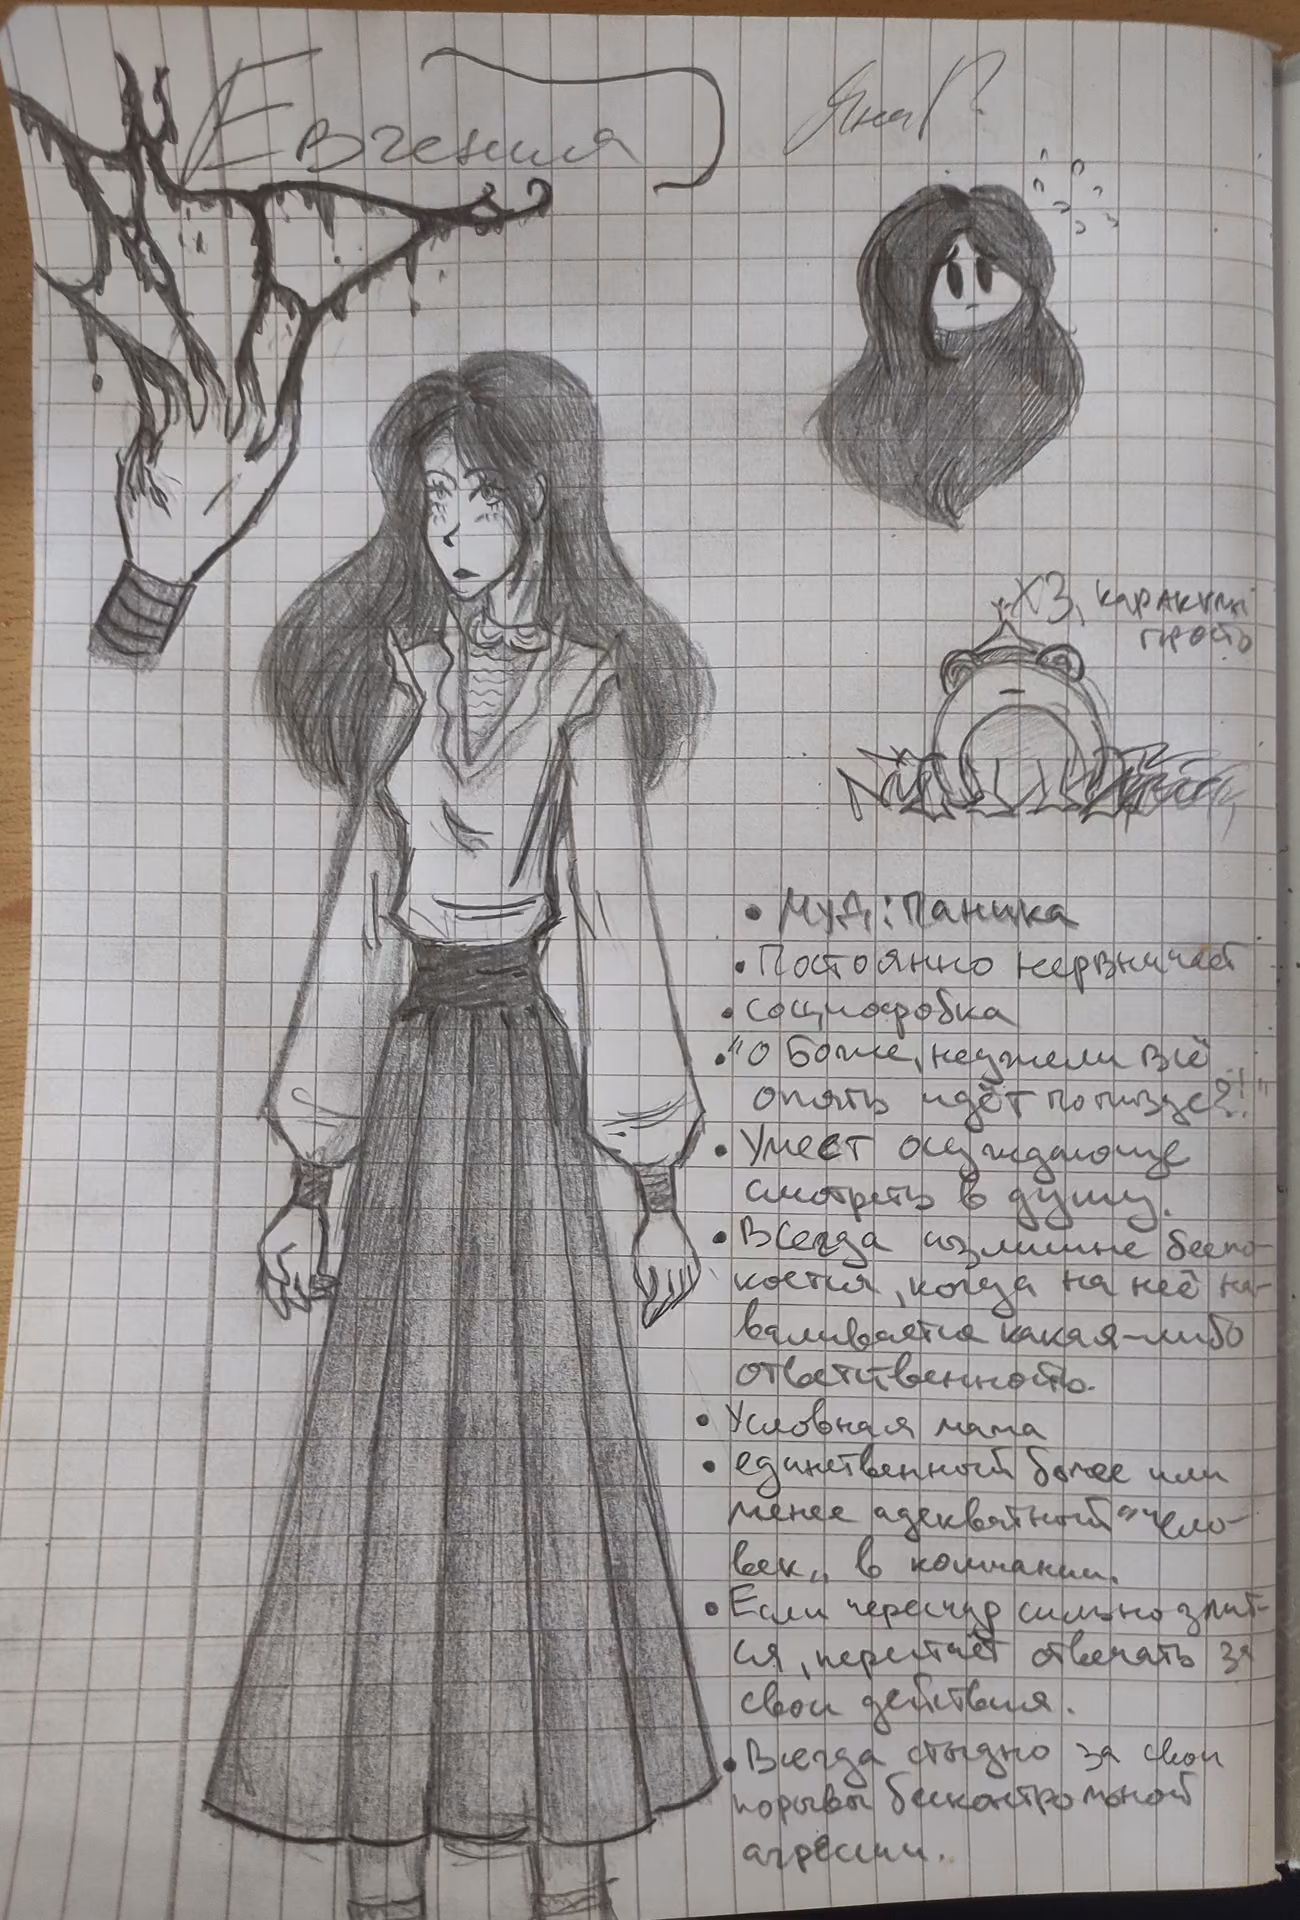 Евгения
ХЗ, каракули
просто
• Муд: Паника
• Постоянно нервничает
• социофобка
• "о Боже, неужели всё
опять идёт по пизде?!"
• Умеет осуждающе
смотреть в душу.
• Всегда излишне беспо-
коется, когда на неё на-
валивается какая-либо
ответственность.
• Условная мама
• единственный более или
менее адекватный "чело-
век„ в компании.
• Если чересчур сильно злит-
ся, перестаёт отвечать за
свои действия.
• Всегда стыдно за свои
порывы бесконтрольной
агрессии.